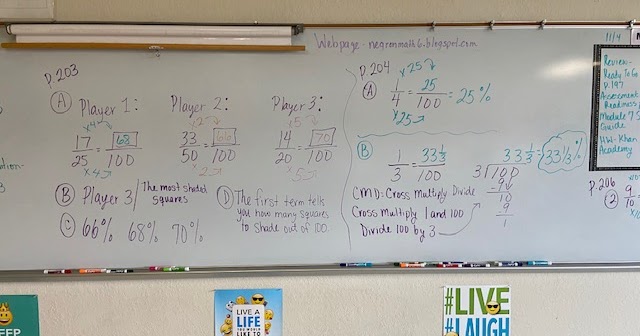 Webpage - negronmath6.blogspot.com
P. 203
A Player 1: Player 2: Player 3:
×4 ×2 ×5
17/25 = 68/100 33/50 = 66/100 14/20 = 70/100
×4 ×2 ×5
B Player 3 / The most shaded
squares
C 66% 68% 70%
D The first term tells
you how many squares
to shade out of 100.
P. 204
×25
A 1/4 = 25/100 = 25%
×25
B 1/3 = 33 1/3 / 100
33 1/3 = 33 1/3 %
3 100
-9
10
9
1
CMD: Cross Multiply Divide
Cross Multiply 1 and 100
Divide 100 by 3
11/4
Review-
Ready To Go
p. 197
Assessment
Readiness
Module 7.5
Guide
HW- Khan
Academy
P. 206
2 9/10
LIVE A
LIFE
YOU WOULD
LIKE TO
#LIVE
#LAUGH